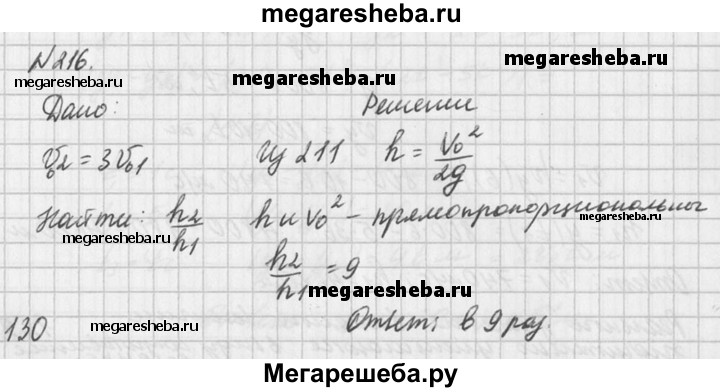 megaresheba.ru
N216.
megaresheba.ru megaresheba.ru
Дано: Решение
v₀₂ = 3v₀₁ Из 211 h = v₀²/2g
Найти: h₂/h₁ h и v₀² - прямопропорциональны
megaresheba.ru megaresheba.ru
h₂/h₁ = 9
megaresheba.ru
130 megaresheba.ru Ответ: в 9 раз.
Мегарешеба.ру